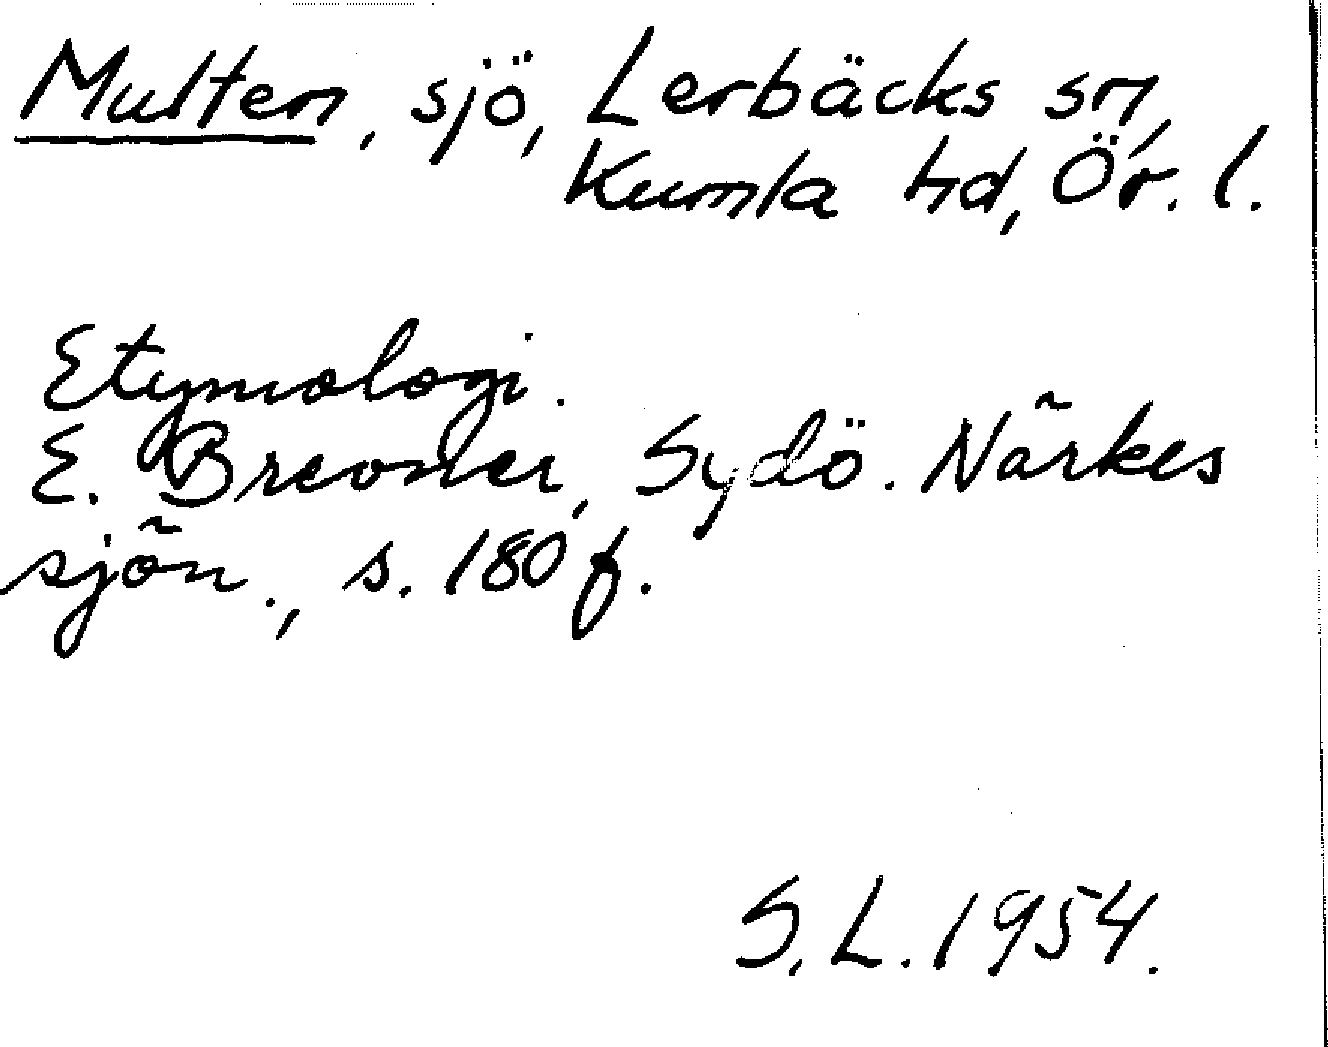 Multen, sjö, Lerbäcks sn,
Kumla hd, Ör. l.
Etymologi.
E. Brevner, Sydö. Närkes
sjön., s. 180 f.
S. L. 1954.